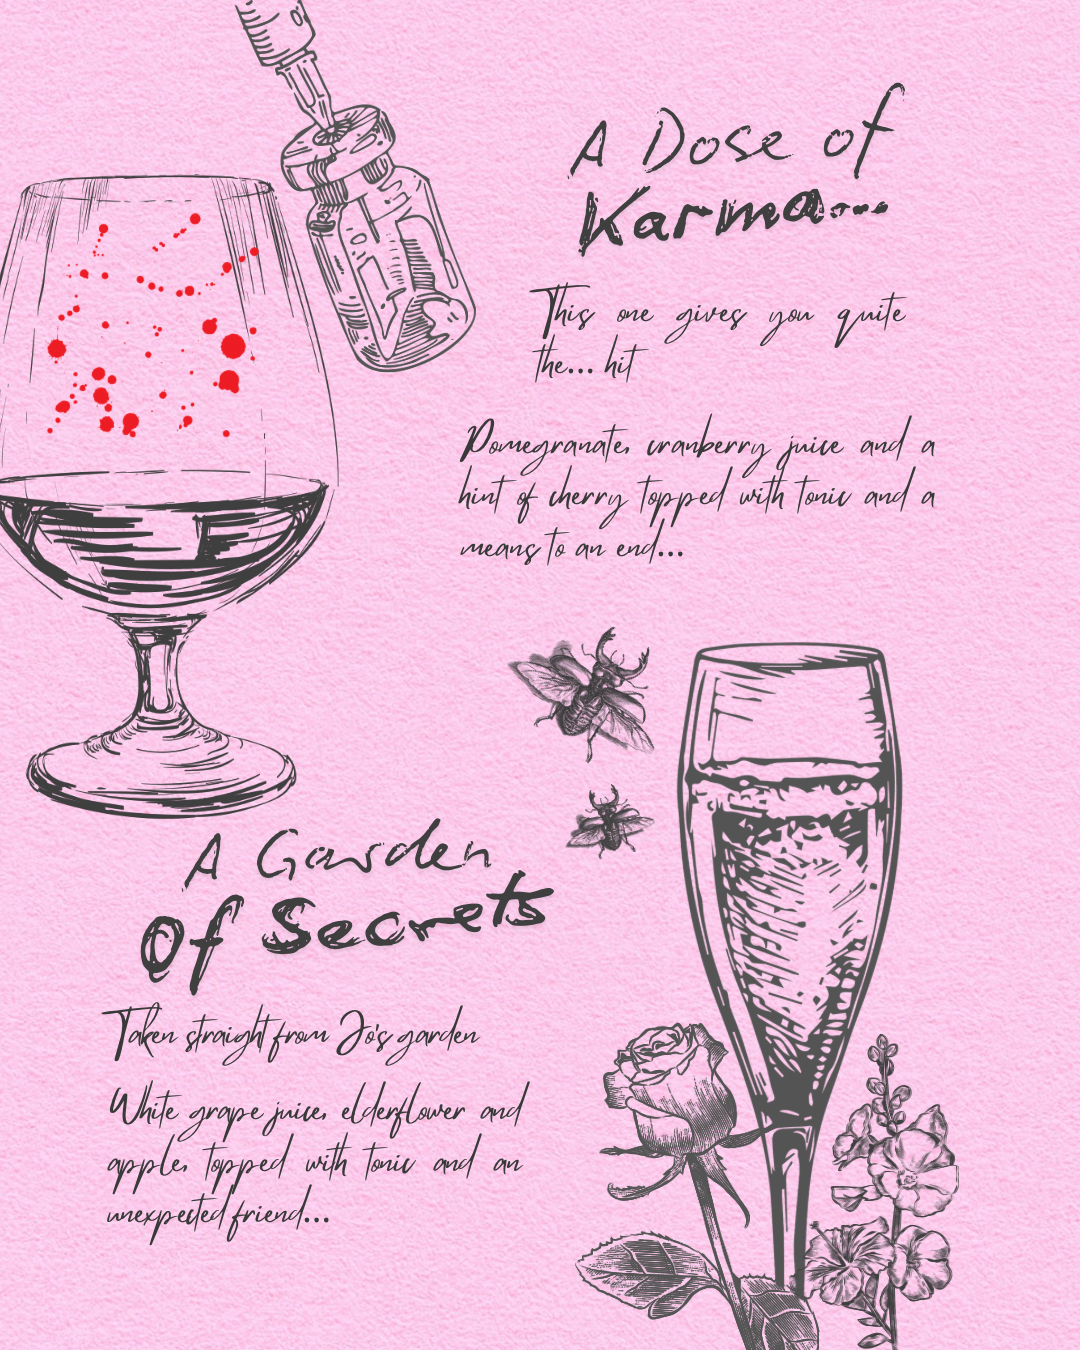 A Dose of
Karma...
This one gives you quite
the... hit
Pomegranate, cranberry juice and a
hint of cherry topped with tonic and a
means to an end...
A Garden
Of Secrets
Taken straight from Jo's garden
White grape juice, elderflower and
apple, topped with tonic and an
unexpected friend...